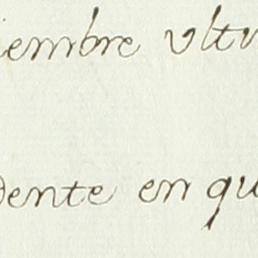 iembre ultu
dente en qu